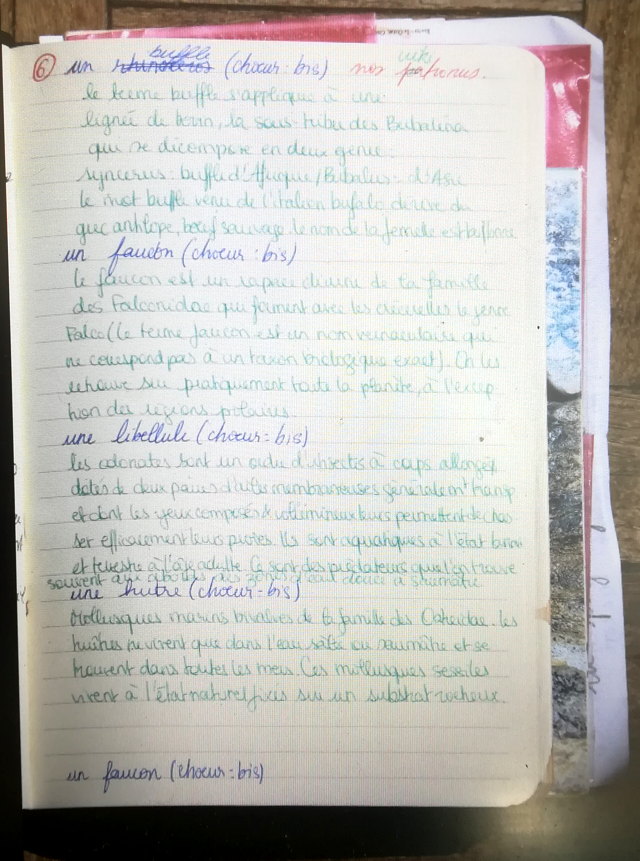 ⑥ un rhinocéros buffle (chœur : bis) nos wiki patronus.
le terme buffle s'applique à une
lignée de bovin, la sous-tribu des Bubalina
qui se décompose en deux genre :
syncerus : buffle d'Afrique / Bubalus : d'Asie
le mot buffle venu de l'italien bufalo dérive du
grec antilope, bœuf sauvage. le nom de la femelle est bufflonne
un faucon (choeur : bis)
le faucon est un rapace diurne de la famille
des Falconidae qui forment avec les crécerelles le genre
Falco (le terme faucon est un nom vernaculaire qui
ne correspond pas à un taxon biologique exact). On les
retrouve sur pratiquement toute la planète, à l'excep
tion des régions polaires.
une libellule (choeur : bis)
les odonates sont un ordre d'insectes à corps allongés
dotés de deux paires d'ailes membraneuses généralemnt transp
et dont les yeux composés & volumineux leurs permettent de chas
ser efficacement leurs proies. Ils sont aquatiques à l'état
et terrestre à l'adulte. Ce sont des prédateurs que l'on trouve
souvent aux abords des zones d'eau douce à
une huître (choeur : bis)
Mollusques marins bivalves de la famille des les
huîtres ne vivent que dans l'eau salée ou saumâtre et se
trouvent dans toutes les mers. Ces mollusques sessiles
vivent à l'état naturel fixés sur un substrat rocheux.
un faucon (choeur : bis)